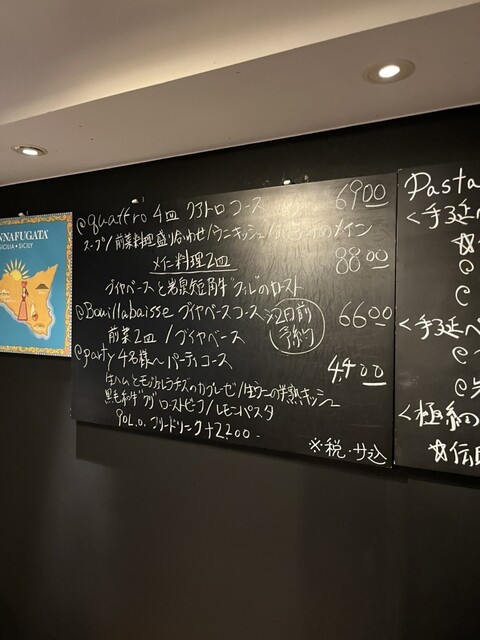 NNAFUGATA
SICILIA • SICILY
@quattro 4皿 クアトロコース 6900
スープ/前菜料理盛り合わせ/ウニキッシュ/メイン
メイン料理2皿 8800
ブイヤベースと岩泉短角牛"フィレ"のロースト
@Bouillabaisse ブイヤベースコース ※2日前予約 6600
前菜2皿 / ブイヤベース
@party 4名様〜パーティコース 4,400
生ハムとモッツァレラチーズのカプレーゼ/生ウニの半熟キッシュ
黒毛和牛ローストビーフ/レモンパスタ
90L.O. フリードリンク+2200-
※税・サ込
Pasta
<手延
<手延べ
<極細の
☆伝